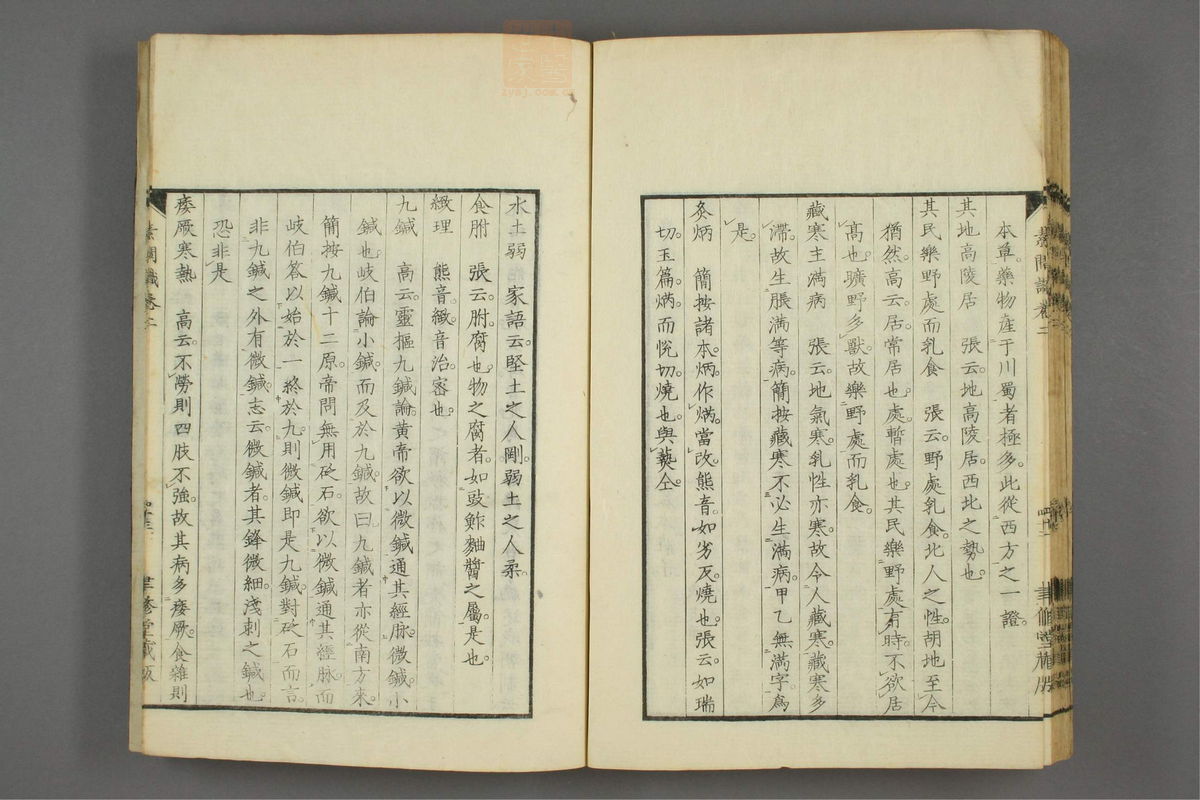 本草藥物產于川蜀者極多此從西方之一證
其地高陵居　張云地高陵居西北之勢也
其民樂野處而乳食　張云野處乳食北人之性胡地至今
猶然高云居常居也處暫處也其民樂野處有時不欲居
高也曠野多獸故樂野處而乳食
藏寒主滿病　張云地氣寒乳性亦寒故令人藏寒藏寒多
滯故生脹滿等病簡按藏寒不必生滿病甲乙無滿字為
是
灸焫　簡按諸本焫作焫當改熊音如劣反燒也張云如瑞
切玉篇焫而悅切燒也與爇仝
水土弱　家語云堅土之人剛弱土之人柔
食胕　張云胕腐也物之腐者如豉鮓麯醬之屬是也
緻理　熊音緻音治密也
九鍼　高云靈樞九鍼論黃帝欲以微鍼通其經脉微鍼小
鍼也岐伯論小鍼而及於九鍼故曰九鍼者亦從南方來
簡按九鍼十二原帝問無用砭石欲以微鍼通其經脉而
岐伯答以始於一終於九則微鍼即是九鍼對砭石而言
非九鍼之外有微鍼志云微鍼者其鋒微細淺刺之鍼也
恐非是
痿厥寒熱　高云不勞則四肢不強故其病多痿厥食雜則
素問識卷二
四十二
聿修堂藏版
素問識卷二
聿修堂藏版
zysj.com.cn